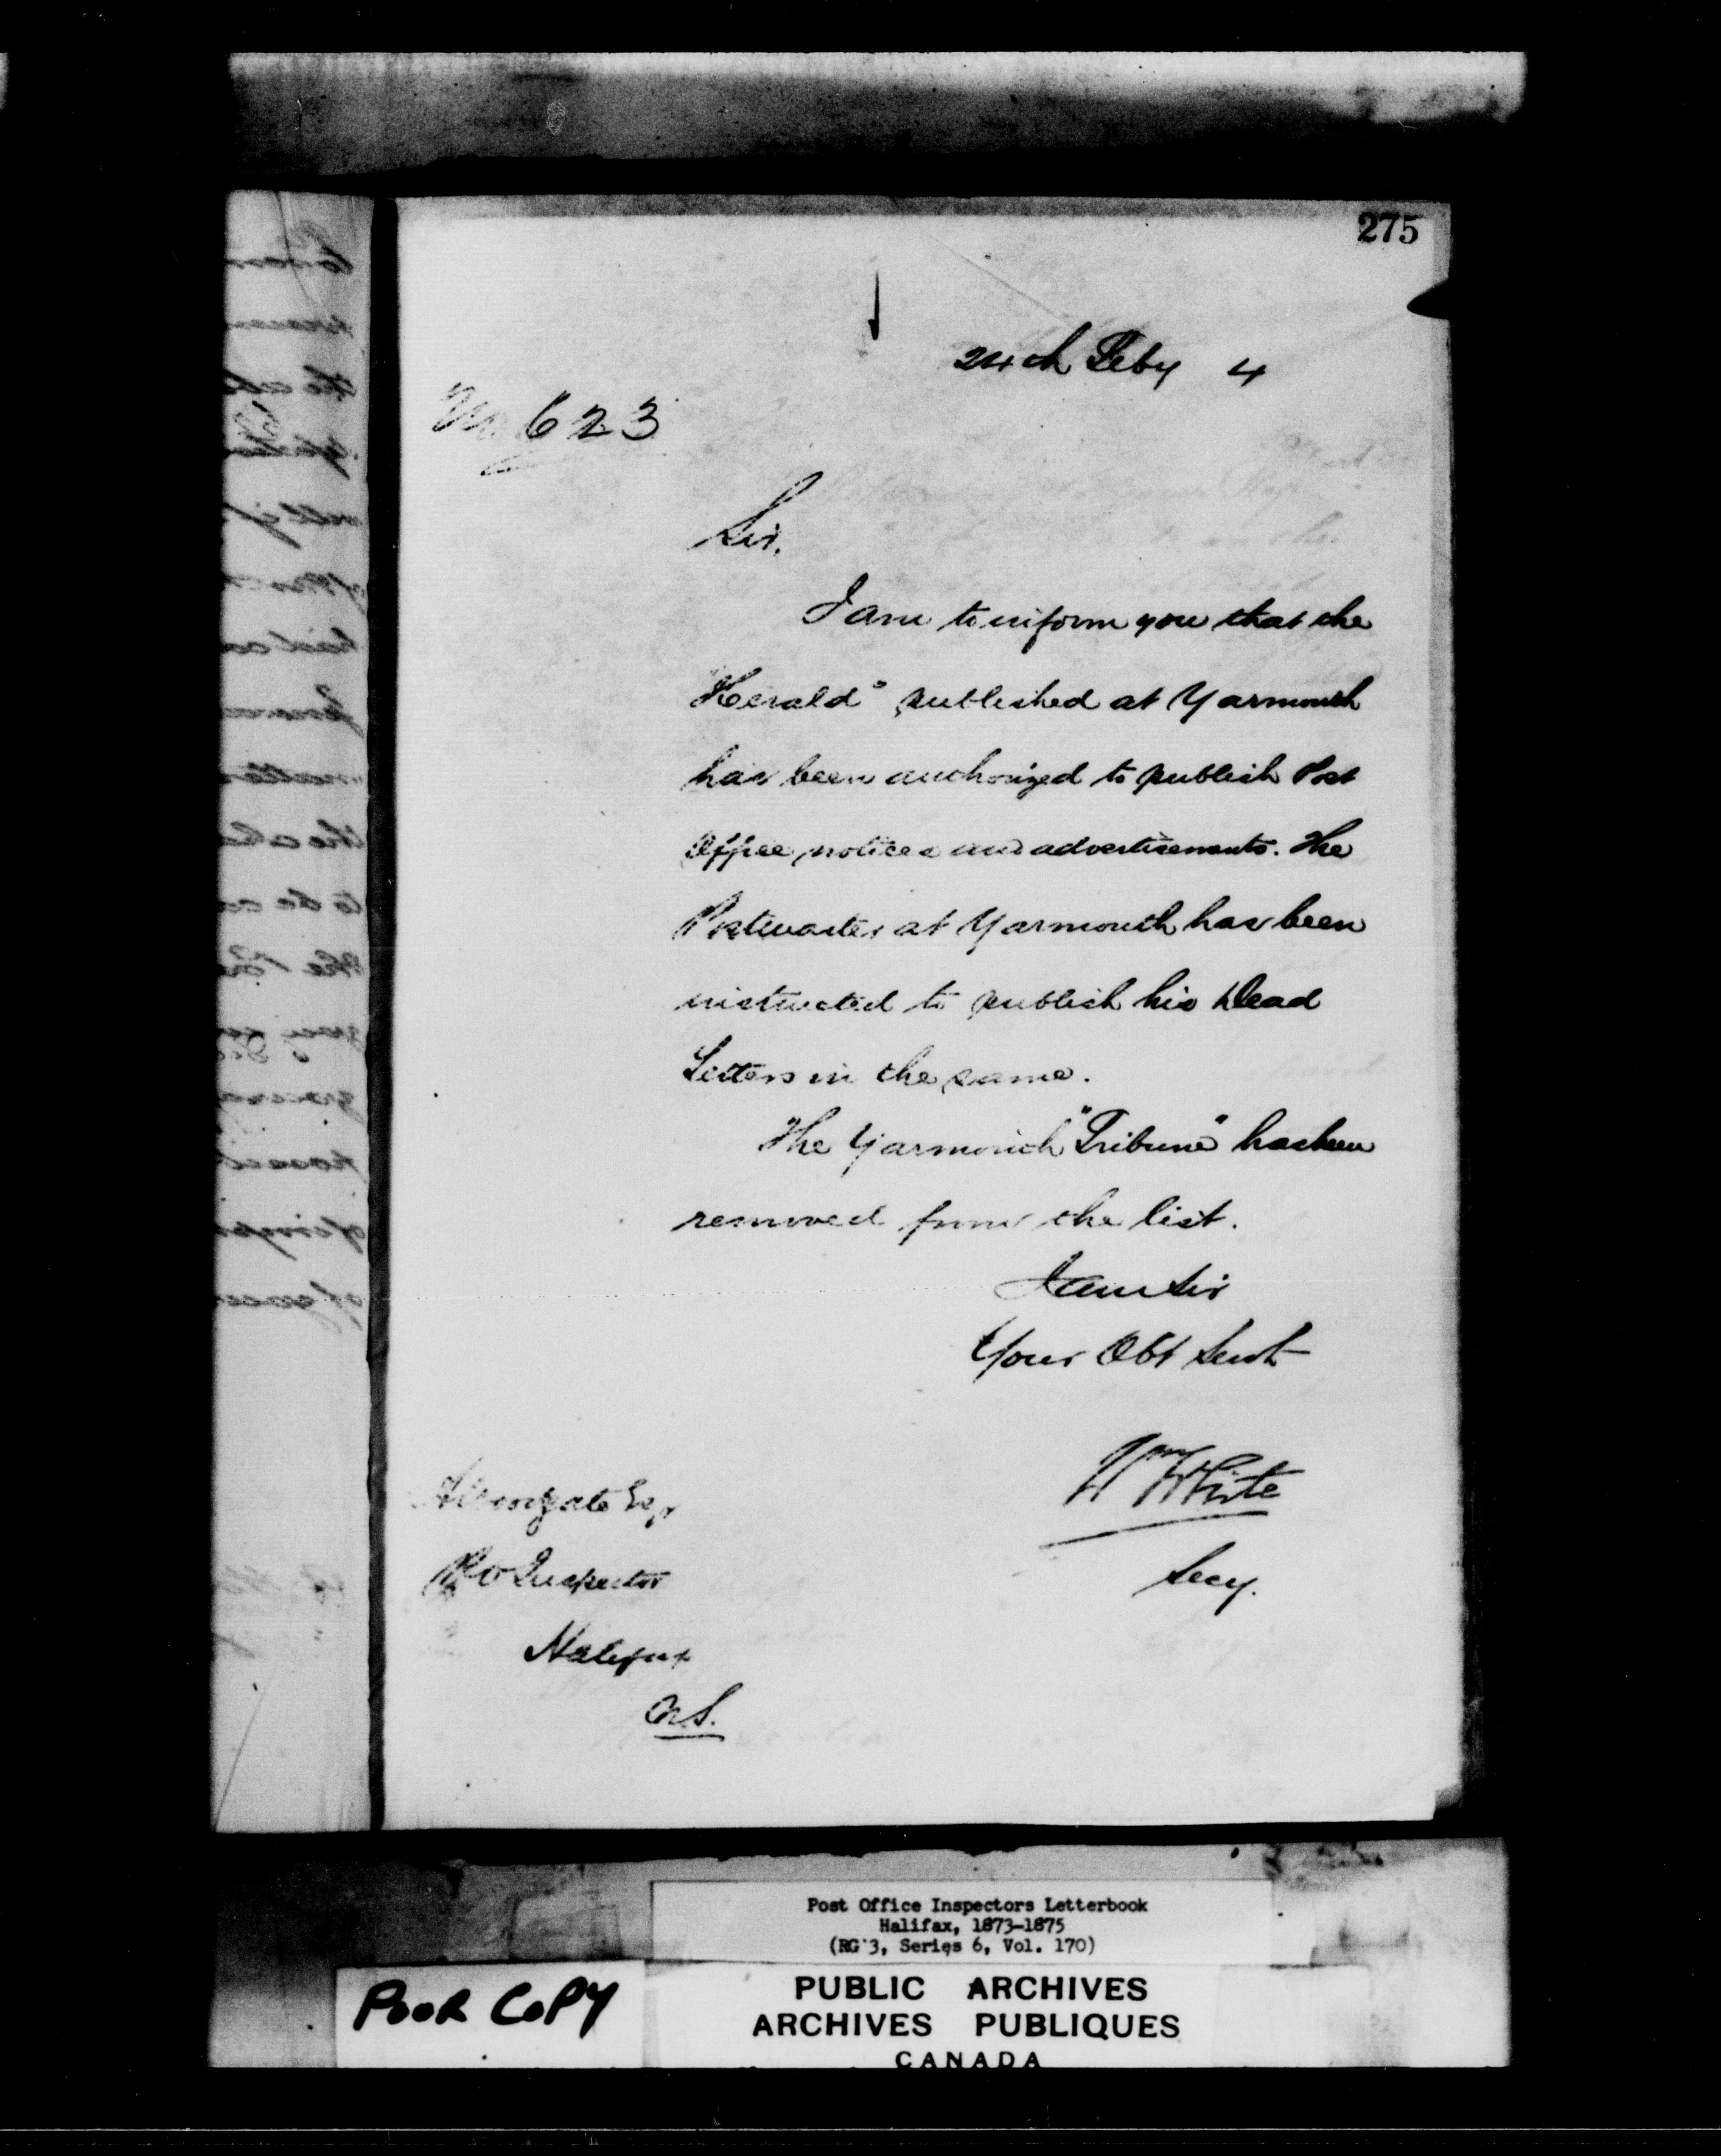 275
24th Feby 4
No 623
Sir,
I am to inform you that the
"Herald" published at Yarmouth
has been authorized to publish Post
Office notices and advertisements. The
Postmaster at Yarmouth has been
instructed to publish his Dead
Letters in the same.
The Yarmouth "Tribune" has been
removed from the list.
I am Sir
Your Obt Servt
Wm White
Secy.
Esqr
P O Inspector
Halifax
N.S.
Post Office Inspectors Letterbook
Halifax, 1873-1875
(RG 3, Series 6, Vol. 170)
POOR COPY
PUBLIC ARCHIVES
ARCHIVES PUBLIQUES
CANADA